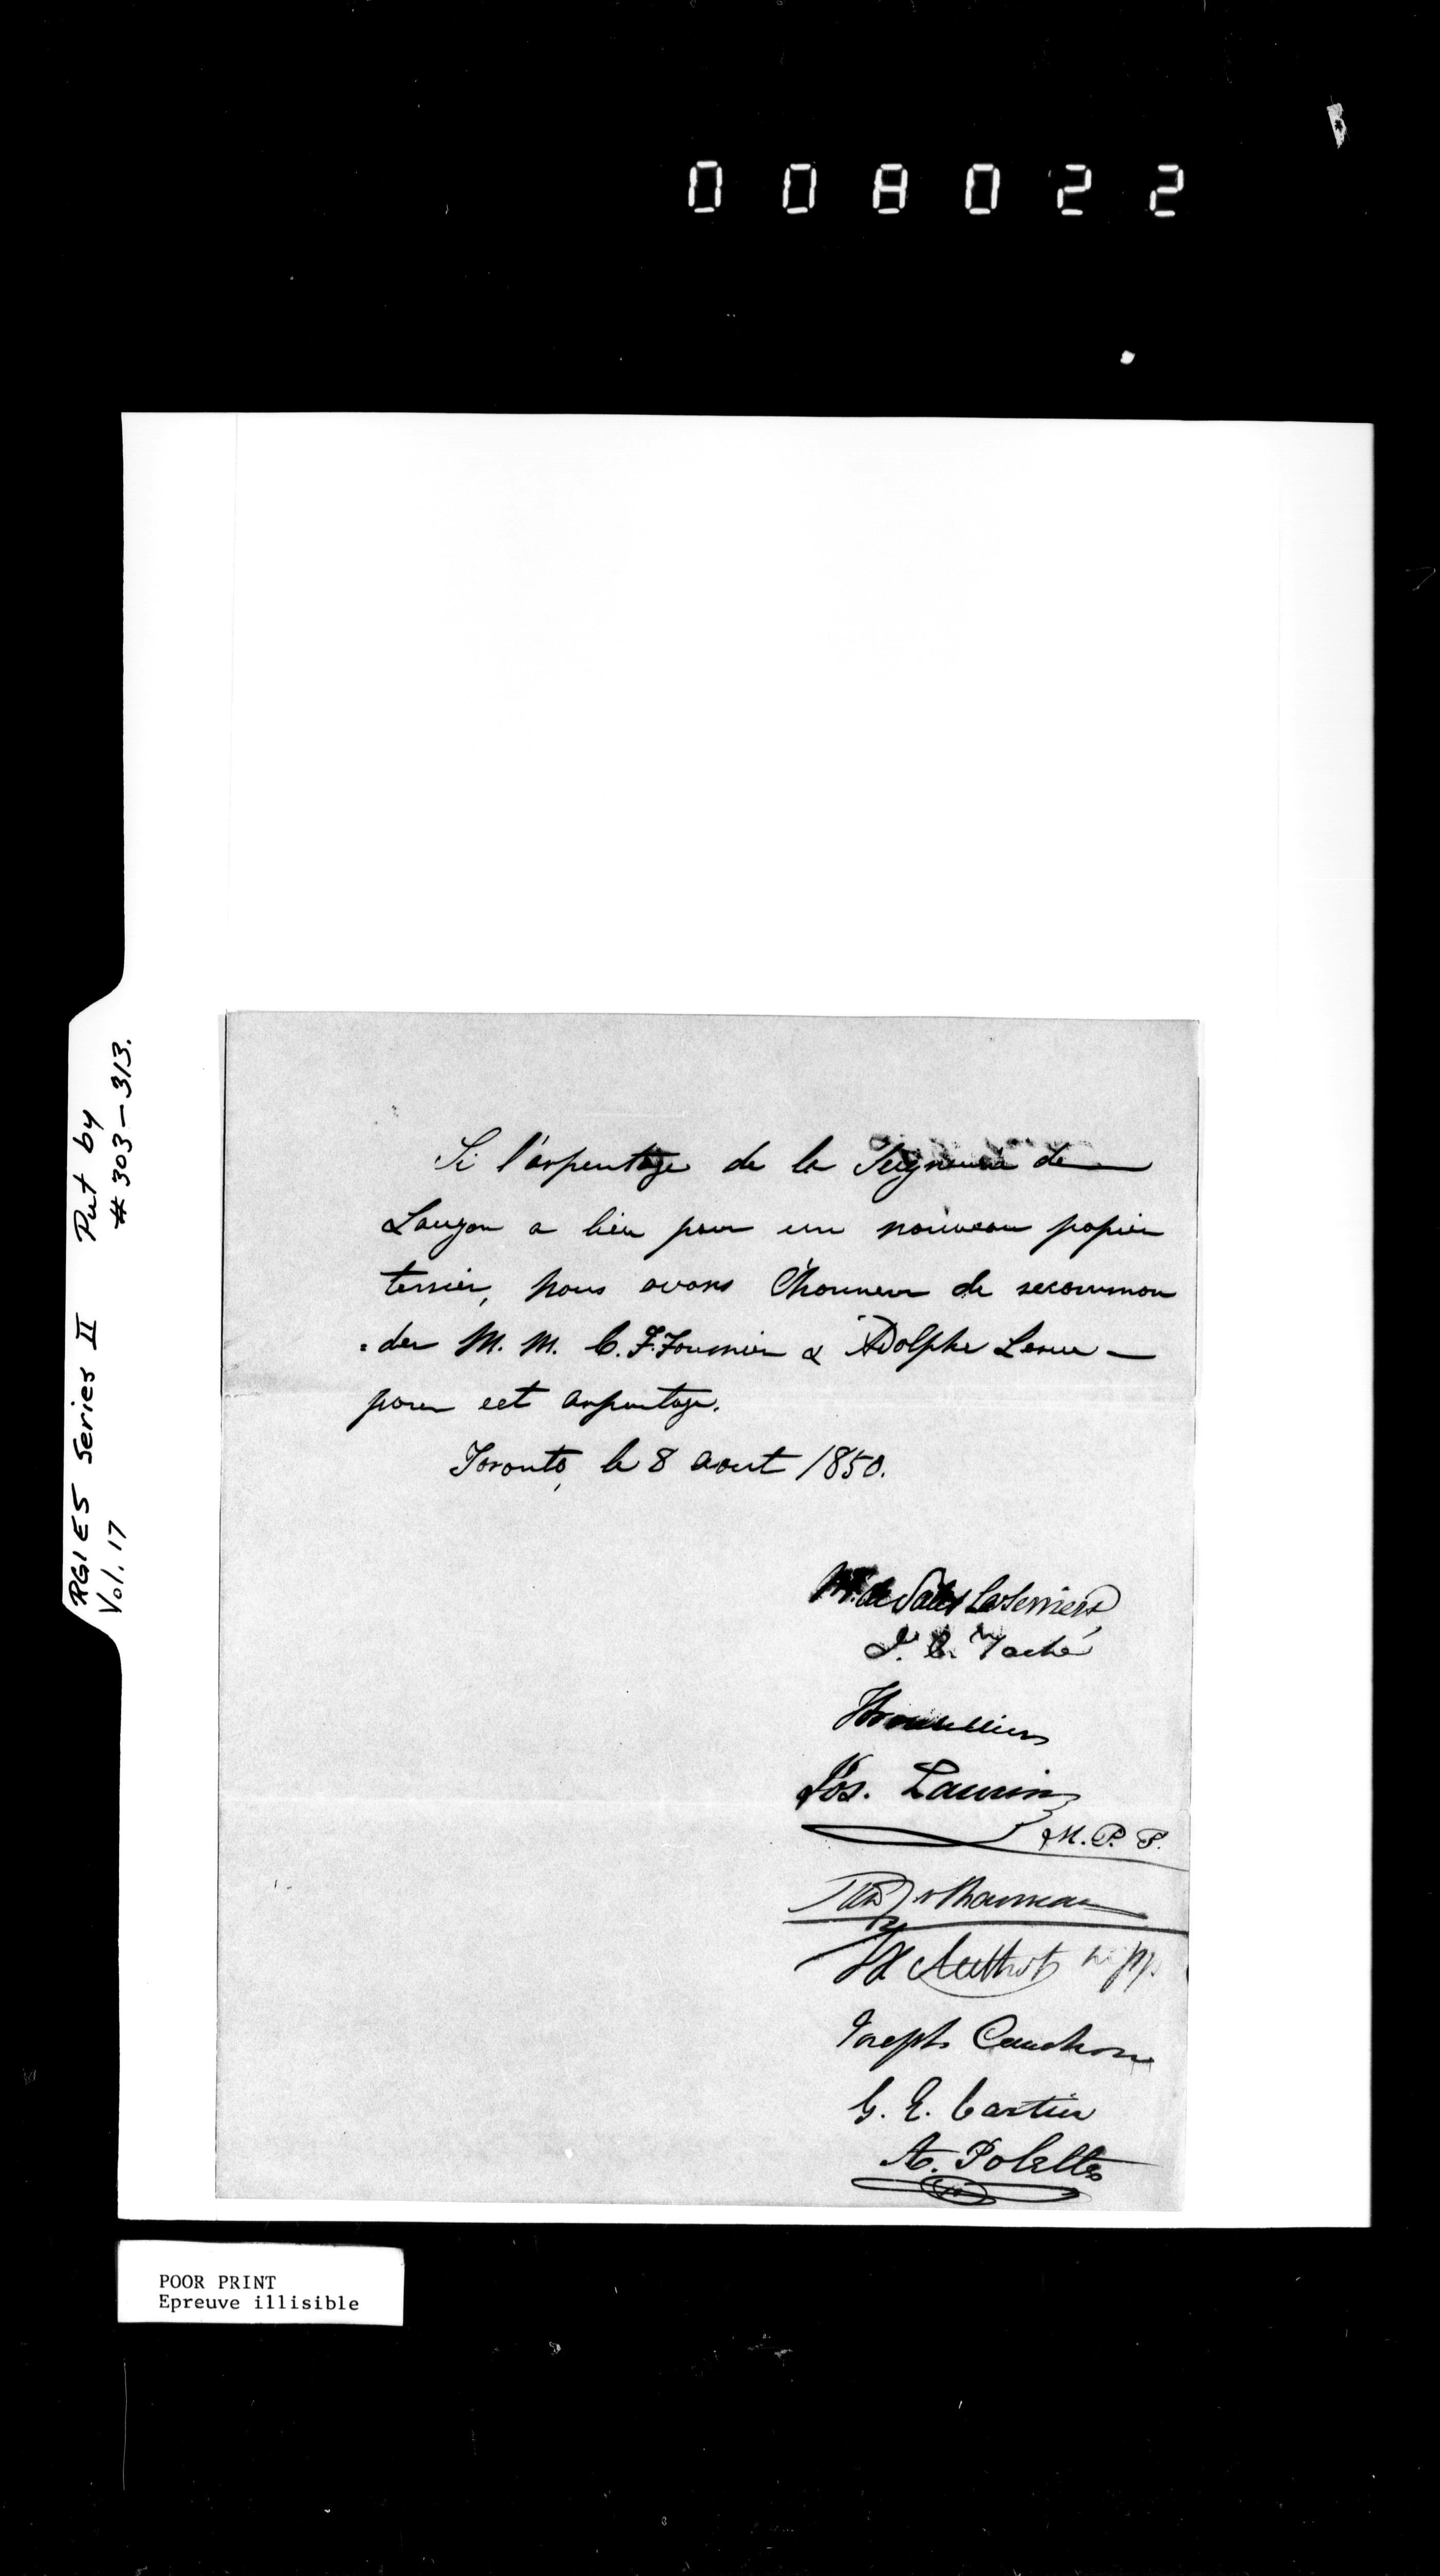 008022
RG1 E5 Series II Put by
Vol. 17 # 303-313.
Si l'arpentage de la Seigneurie de
Lauzon a lieu pour un nouveau papier
terrier, nous avons l'honneur de recomman
=der M. M. C. F. Fournier & Adolphe Larue
pour cet arpentage.
Toronto, le 8 aout 1850.
M. de Sales Laterriere
J. C. Taché
Jos. Laurin
M. P. P.
Joseph Cauchon
G. E. Cartier
A. Polette
POOR PRINT
Epreuve illisible